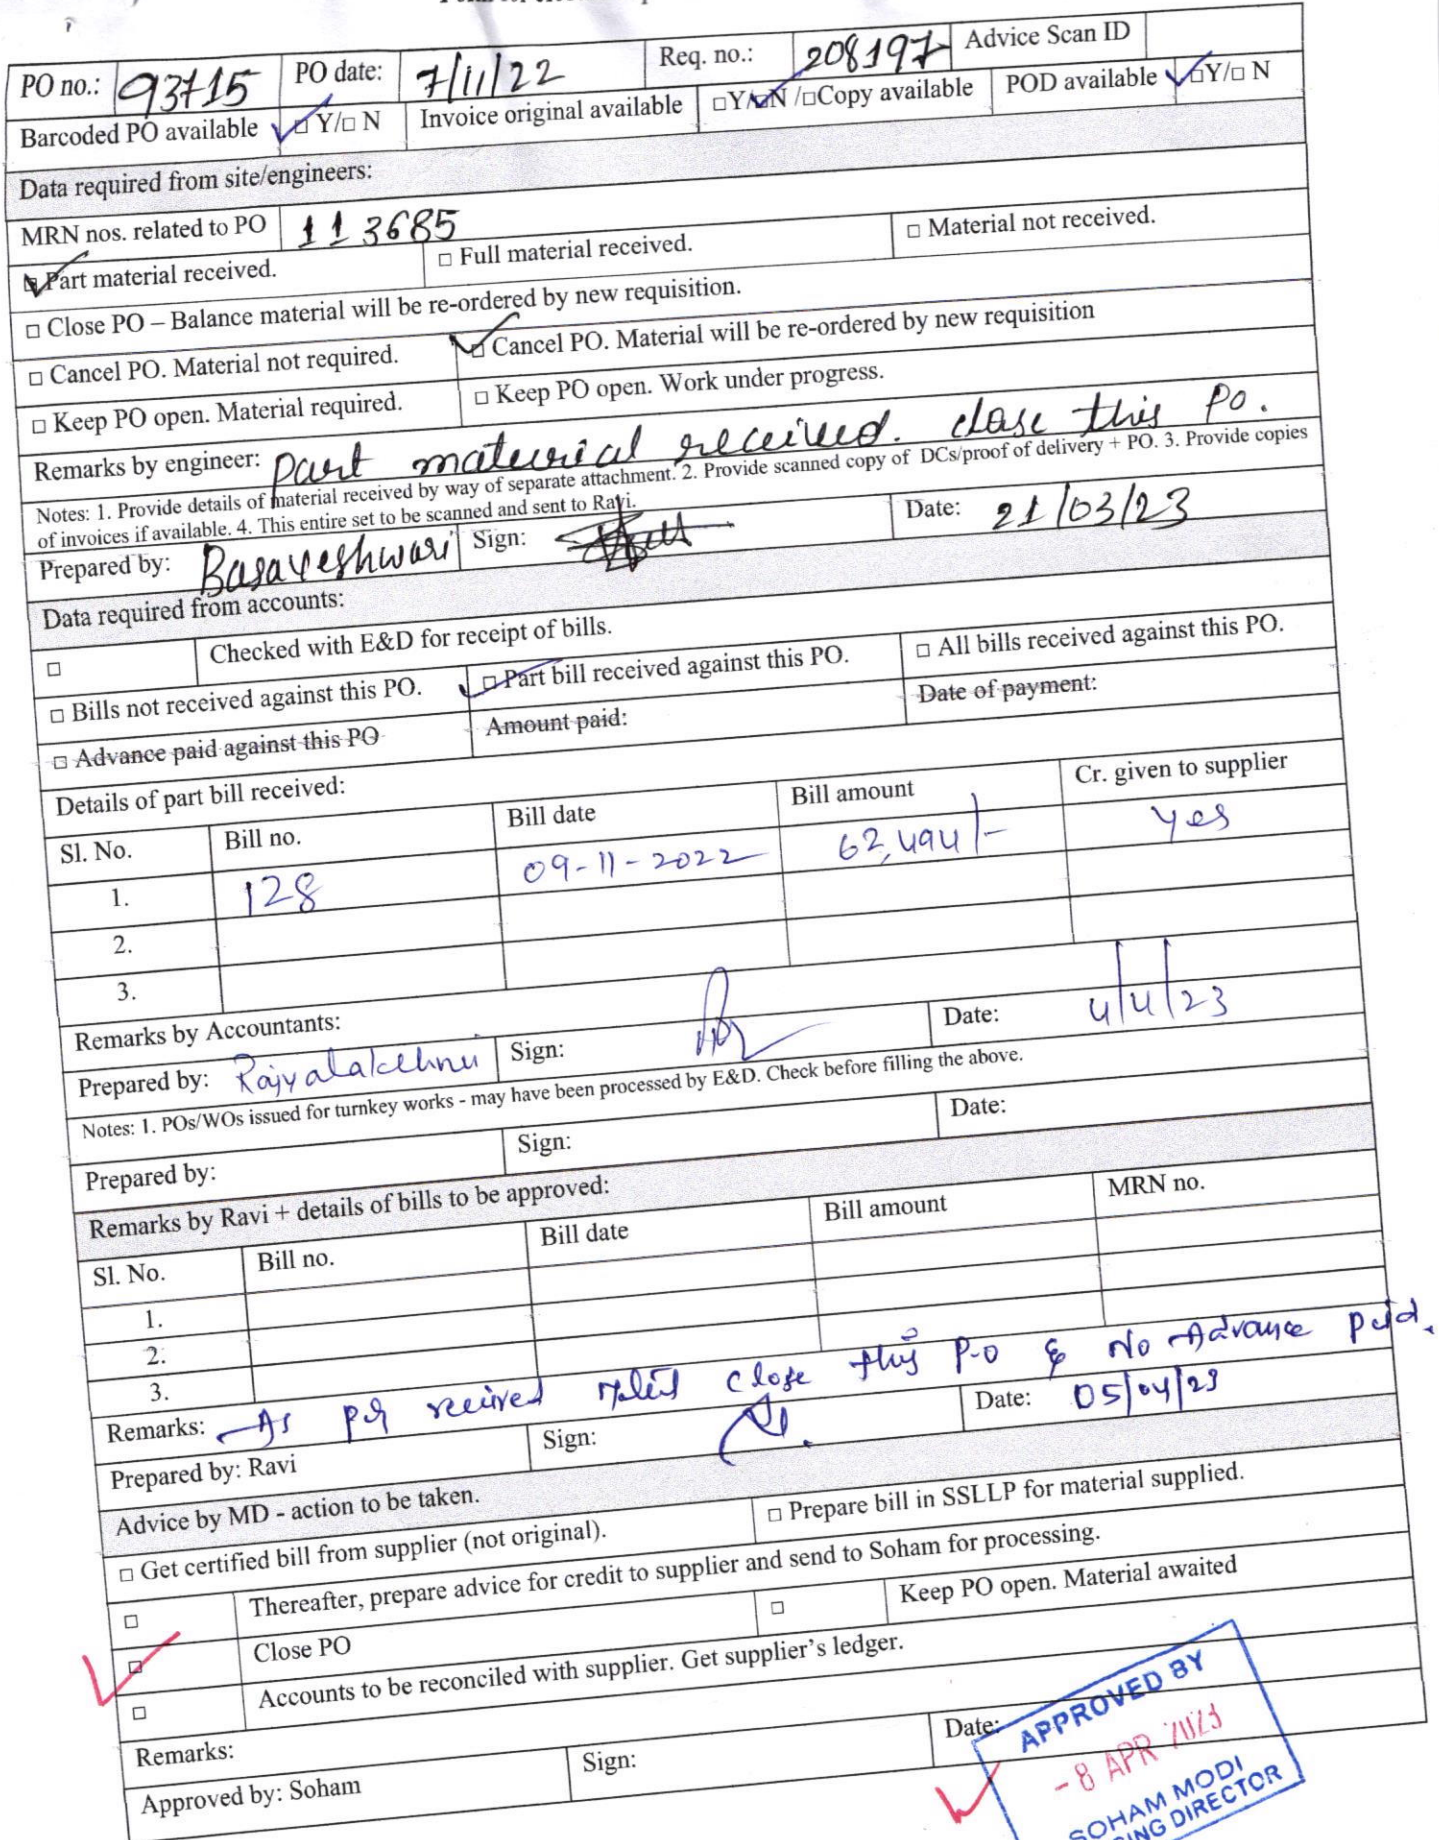 PO no.: 93715 PO date: 7/11/22 Req. no.: 208197 Advice Scan ID
Barcoded PO available □ Y/□ N Invoice original available □Y/□N /□Copy available POD available □Y/□ N
Data required from site/engineers:
MRN nos. related to PO 113685
□ Part material received. □ Full material received. □ Material not received.
□ Close PO – Balance material will be re-ordered by new requisition.
□ Cancel PO. Material not required. □ Cancel PO. Material will be re-ordered by new requisition
□ Keep PO open. Material required. □ Keep PO open. Work under progress.
Remarks by engineer: Part material received. close this PO.
Notes: 1. Provide details of material received by way of separate attachment. 2. Provide scanned copy of DCs/proof of delivery + PO. 3. Provide copies
of invoices if available. 4. This entire set to be scanned and sent to Ravi.
Prepared by: Basaveshwari Sign: Date: 21/03/23
Data required from accounts:
□ Checked with E&D for receipt of bills.
□ Bills not received against this PO. □ Part bill received against this PO. □ All bills received against this PO.
□ Advance paid against this PO Amount paid: Date of payment:
Details of part bill received:
Sl. No. Bill no. Bill date Bill amount Cr. given to supplier
1. 128 09-11-2022 62,494/- yes
2.
3.
Remarks by Accountants:
Prepared by: Rajyalakshmi Sign: Date: 4/4/23
Notes: 1. POs/WOs issued for turnkey works - may have been processed by E&D. Check before filling the above.
Prepared by: Sign: Date:
Remarks by Ravi + details of bills to be approved:
Sl. No. Bill no. Bill date Bill amount MRN no.
1.
2.
3.
Remarks: As per received close this P.O & No Advance paid.
Prepared by: Ravi Sign: Date: 05/04/23
Advice by MD - action to be taken.
□ Get certified bill from supplier (not original). □ Prepare bill in SSLLP for material supplied.
□ Thereafter, prepare advice for credit to supplier and send to Soham for processing.
□ Close PO □ Keep PO open. Material awaited
□ Accounts to be reconciled with supplier. Get supplier's ledger.
Remarks:
Approved by: Soham Sign: Date:
APPROVED BY
- 8 APR 2023
SOHAM MODI
ING DIRECTOR